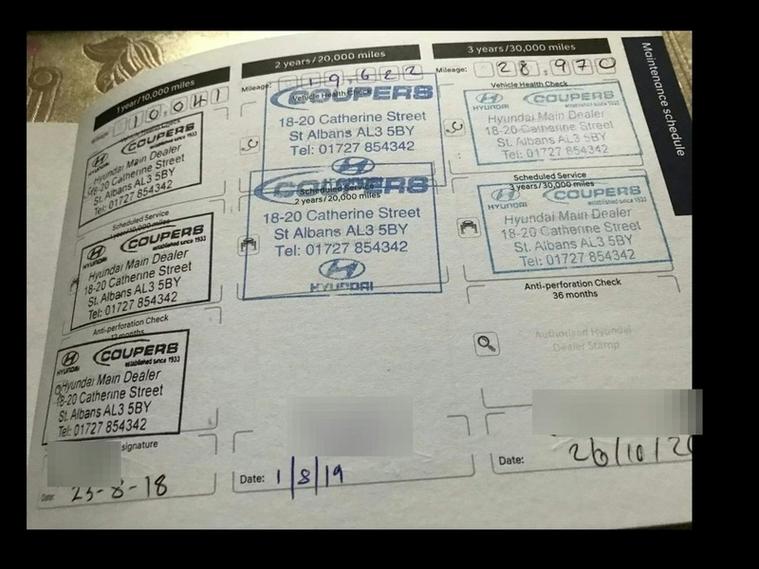 1 year/10,000 miles
10,041
COUPERS
established since 1933
HYUNDAI
Hyundai Main Dealer
18-20 Catherine Street
St. Albans AL3 5BY
Tel: 01727 854342
Scheduled Service
1 year/10,000 miles
COUPERS
established since 1933
HYUNDAI
Hyundai Main Dealer
18-20 Catherine Street
St. Albans AL3 5BY
Tel: 01727 854342
Anti-perforation Check
12 months
COUPERS
established since 1933
HYUNDAI
Hyundai Main Dealer
18-20 Catherine Street
St. Albans AL3 5BY
Tel: 01727 854342
signature
Date: 23-8-18
2 years/20,000 miles
Mileage: 19,622
Vehicle Health Check
COUPERS
18-20 Catherine Street
St Albans AL3 5BY
Tel: 01727 854342
COUPERS
Scheduled Service
2 years/20,000 miles
18-20 Catherine Street
St Albans AL3 5BY
Tel: 01727 854342
HYUNDAI
Date: 1/8/19
3 years/30,000 miles
Mileage: 28,970
Vehicle Health Check
HYUNDAI
COUPERS
Hyundai Main Dealer
18-20 Catherine Street
St. Albans AL3 5BY
Tel: 01727 854342
Scheduled Service
3 years/30,000 miles
HYUNDAI
COUPERS
Hyundai Main Dealer
18-20 Catherine Street
St. Albans AL3 5BY
Tel: 01727 854342
Anti-perforation Check
36 months
Authorised Hyundai
Dealer Stamp
Date: 26/10/20
Maintenance schedule